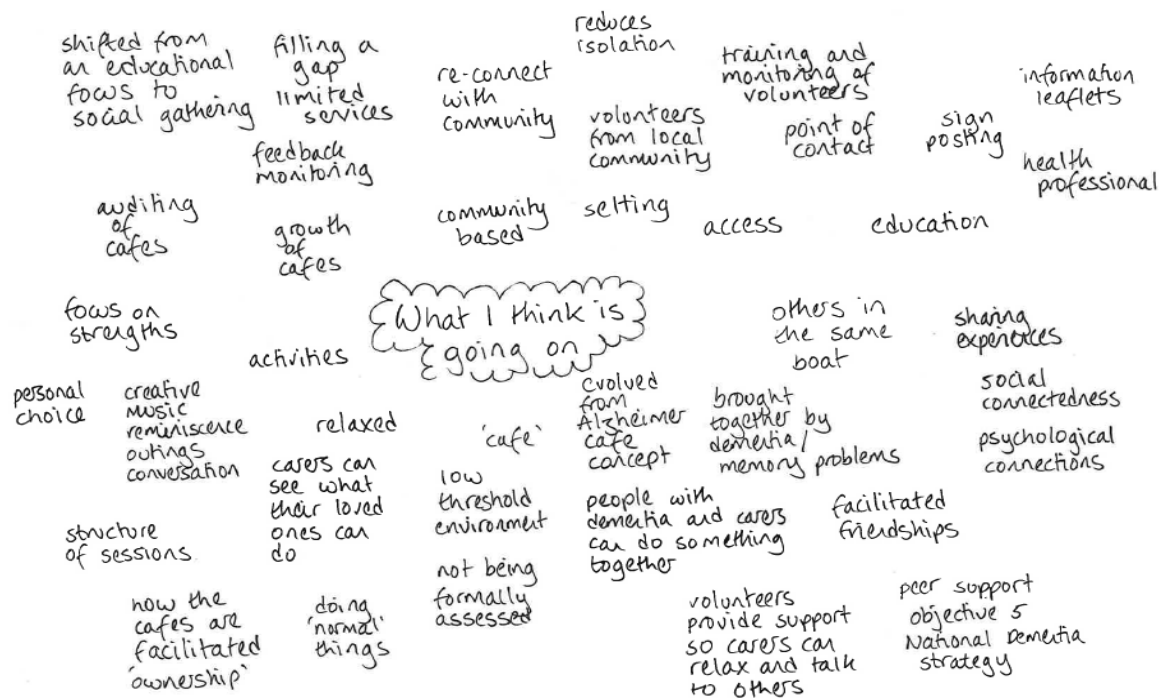 shifted from
an educational
focus to
social gathering
filling a
gap
limited
services
re-connect
with
community
reduces
isolation
training and
monitoring of
volunteers
information
leaflets
feedback
monitoring
volunteers
from local
community
point of
contact
sign
posting
health
professional
auditing
of
cafes
growth
of
cafes
community
based
setting
access
education
focus on
strengths
activities
What I think is
going on
others in
the same
boat
sharing
experiences
personal
choice
creative
music
reminiscence
outings
conversation
relaxed
'cafe'
evolved
from
Alzheimer
cafe
concept
brought
together by
dementia/
memory problems
social
connectedness
psychological
connections
carers can
see what
their loved
ones can
do
low
threshold
environment
people with
dementia and carers
can do something
together
facilitated
friendships
structure
of sessions
how the
cafes are
facilitated
'ownership'
doing
'normal'
things
not being
formally
assessed
volunteers
provide support
so carers can
relax and talk
to others
peer support
objective 5
National Dementia
strategy